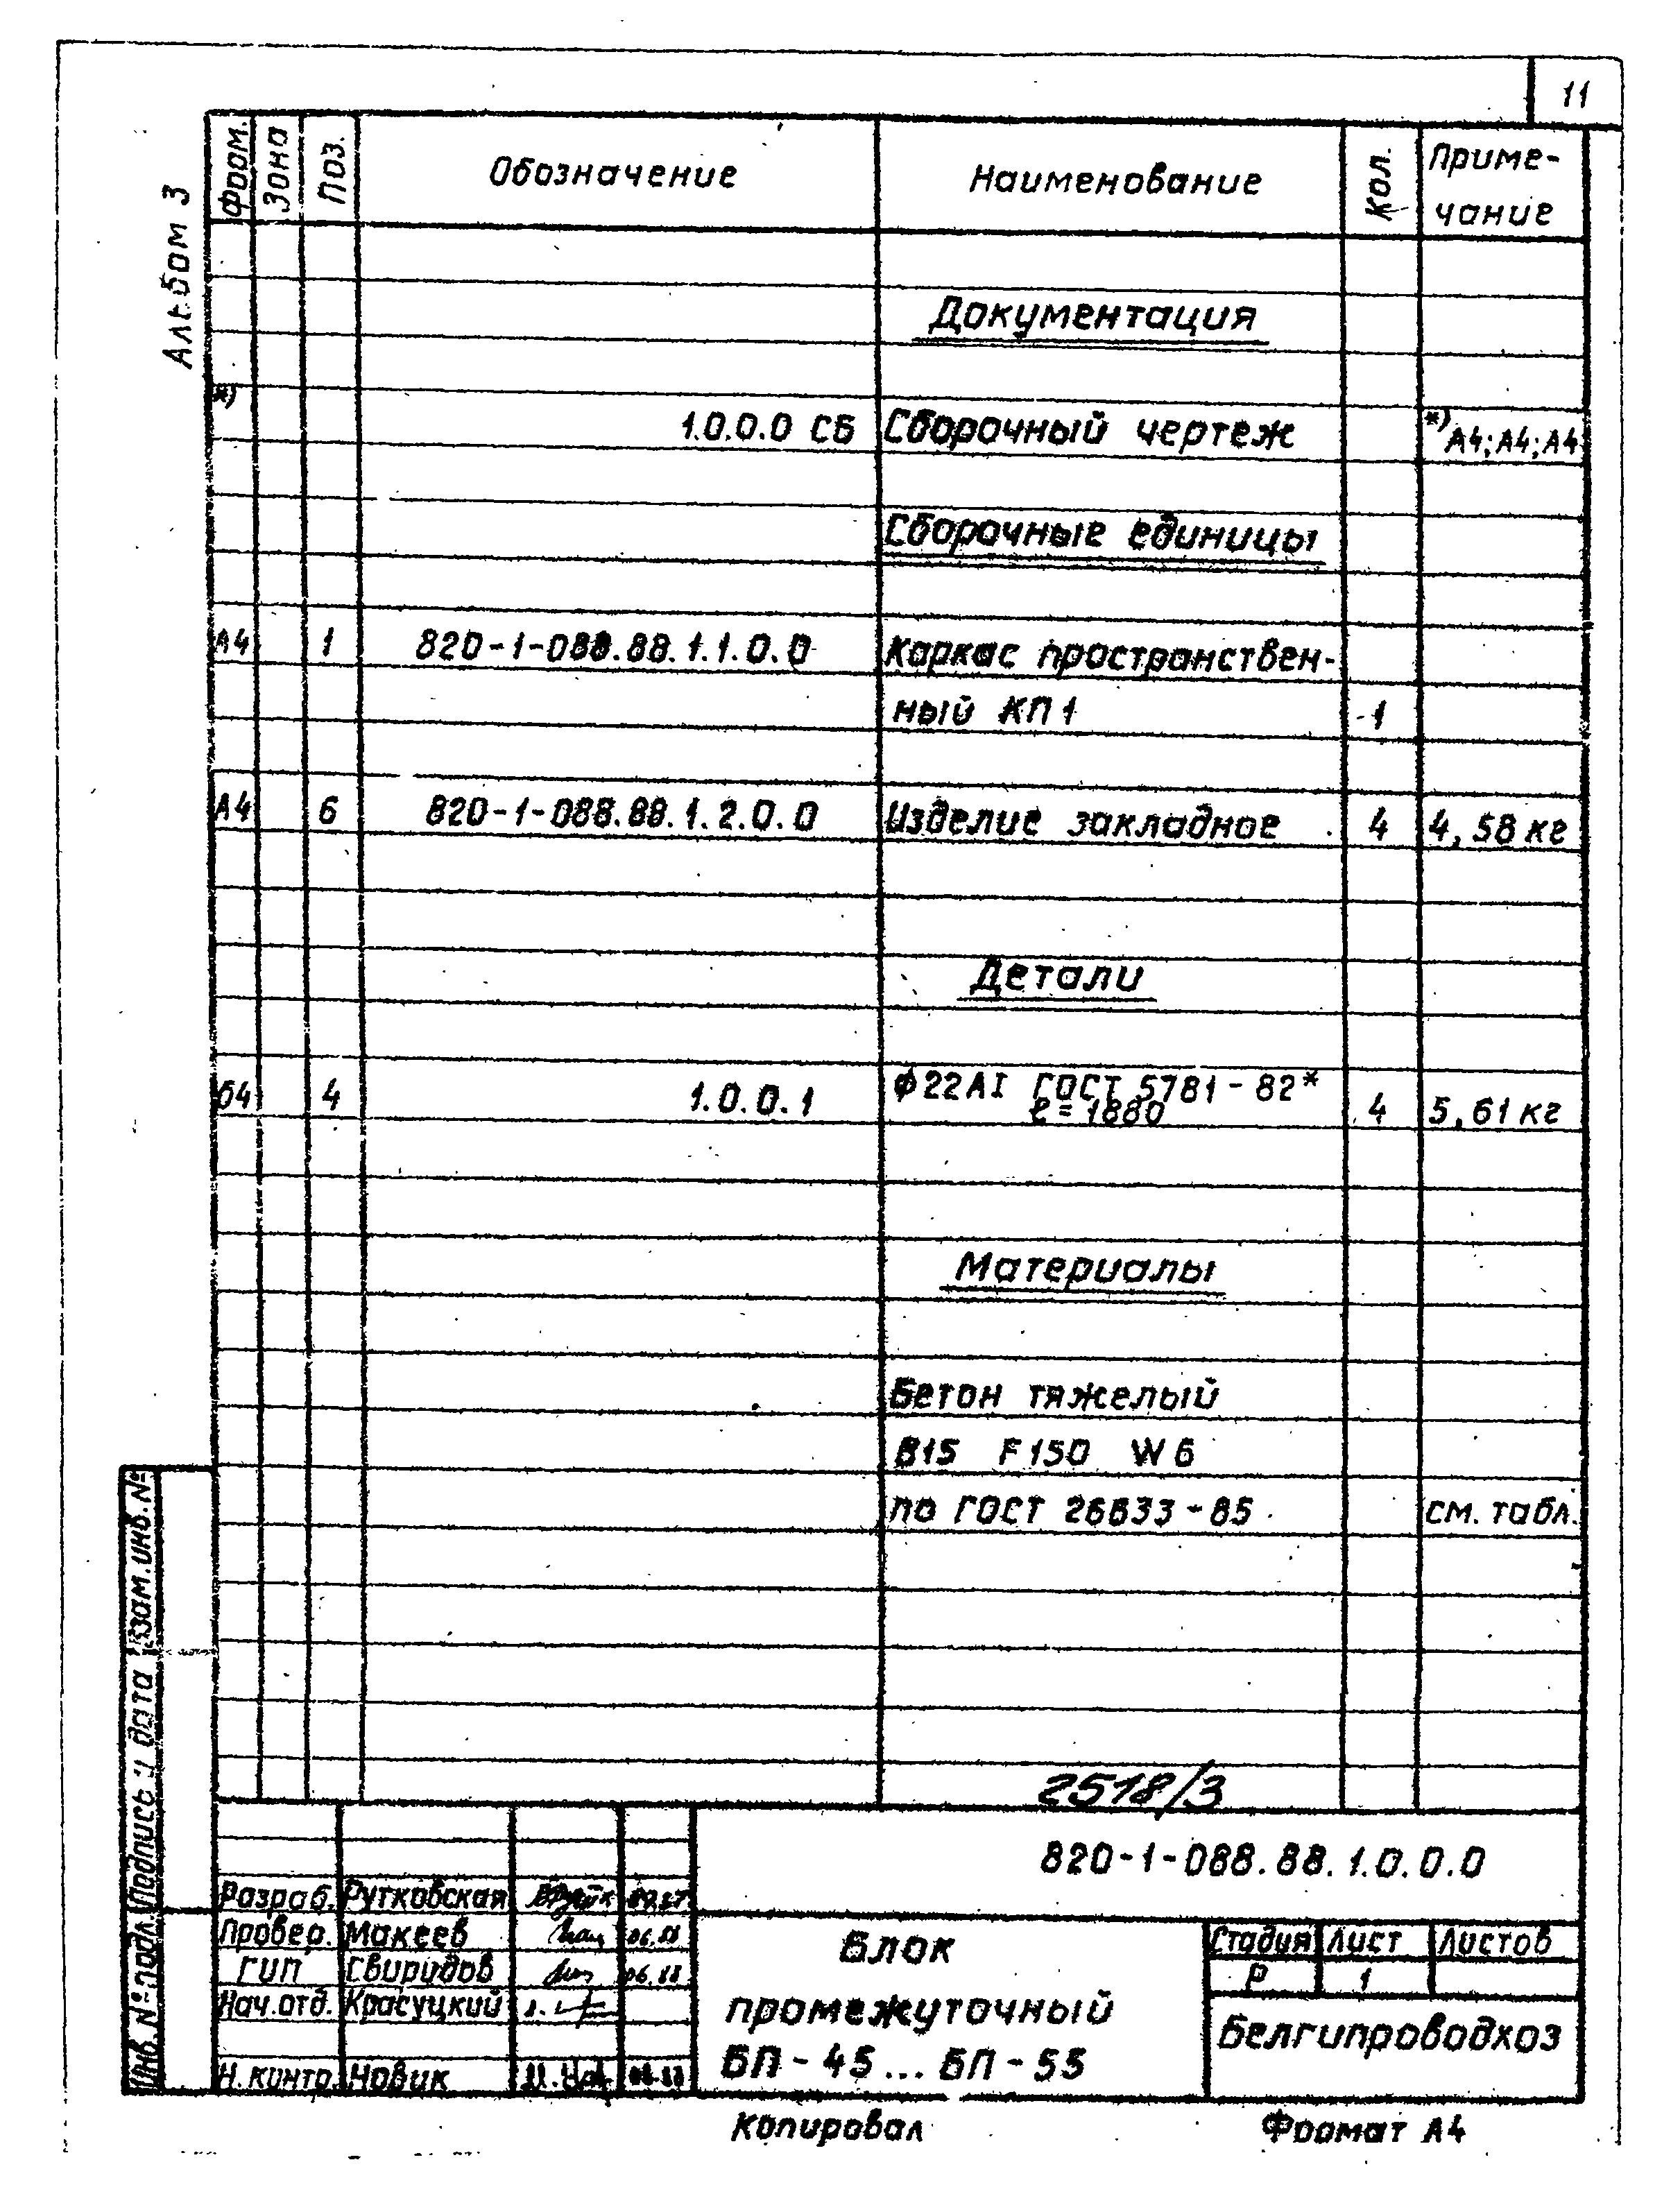 11
Альбом 3
Форм. Зона Поз. Обозначение Наименование Кол. Приме-
чание
Документация
*)
1.0.0.0 СБ Сборочный чертеж *) А4; А4; А4
Сборочные единицы
А4 1 820-1-088.88.1.1.0.0 Каркас пространствен-
ный КП1 1
А4 6 820-1-088.88.1.2.0.0 Изделие закладное 4 4,58 кг
Детали
б4 4 1.0.0.1 ф22АI ГОСТ 5781-82* 4 5,61 кг
ℓ=1880
Материалы
Бетон тяжелый
В15 F150 W6
по ГОСТ 26633-85 см. табл.
2518/3
820-1-088.88.1.0.0.0
Разраб. Рутковская
Провер. Макеев
ГИП Свиридов 06.88
Нач.отд. Красуцкий
Н.контр. Новик 06.88
Блок
промежуточный
БП-45...БП-55
Стадия Лист Листов
Р 1
Белгипроводхоз
Инв.№подл. Подпись и дата Взам.инв.№
Копировал Формат А4